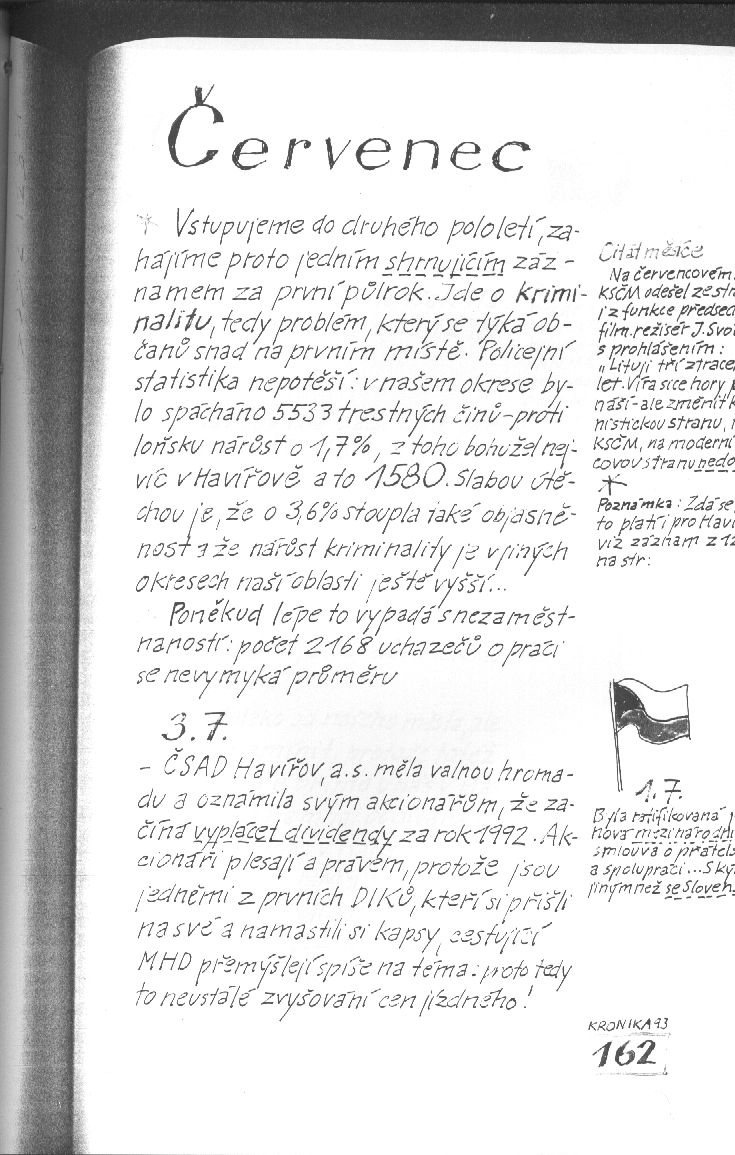 Červenec
* Vstupujeme do druhého pololetí, za-
hájíme proto jedním shrnujícím záz-
namem za první půlrok. Jde o krimi-
nalitu, tedy problém, který se týká ob-
čanů snad na prvním místě. Policejní
statistika nepotěší: v našem okrese by-
lo spácháno 5533 trestných činů-proti
loňsku nárůst o 1,7%, z toho bohužel nej-
víc v Havířově a to 1580. Slabou útě-
chou je, že o 3,6% stoupla také objasně-
nost a že nárůst kriminality je v jiných
okresech naší oblasti ještě vyšší...
Poněkud lépe to vypadá s nezaměst-
naností: počet 2168 uchazečů o práci
se nevymyká průměru
3.7.
- ČSAD Havířov, a.s. měla valnou hroma-
du a oznámila svým akcionářům, že za-
číná vyplácet dividendy za rok 1992. Ak-
cionáři plesají a právem, protože jsou
jedněmi z prvních DIKů, kteří si přišli
na své a namastili si kapsy, cestující
MHD přemýšlejí spíše na téma: proto tedy
to neustálé zvyšování cen jízdného!
Citát měsíce
Na červencovém
KSČM odešel ze str
i z funkce předsed
film. režisér J. Svo
s prohlášením:
„Lituji tří ztrace
let. Víra sice hory p
náší-ale změnit k
nistickou stranu,
KSČM, na moderní
covou stranu nedo
*
Poznámka: Zdá se,
to platí pro Haví
viz záznam z 12
na str:
1.7.
Byla ratifikovaná
nová mezinárodní
smlouva o přátels
a spolupráci... S ký
jiným než se Sloven
KRONIKA 93
162